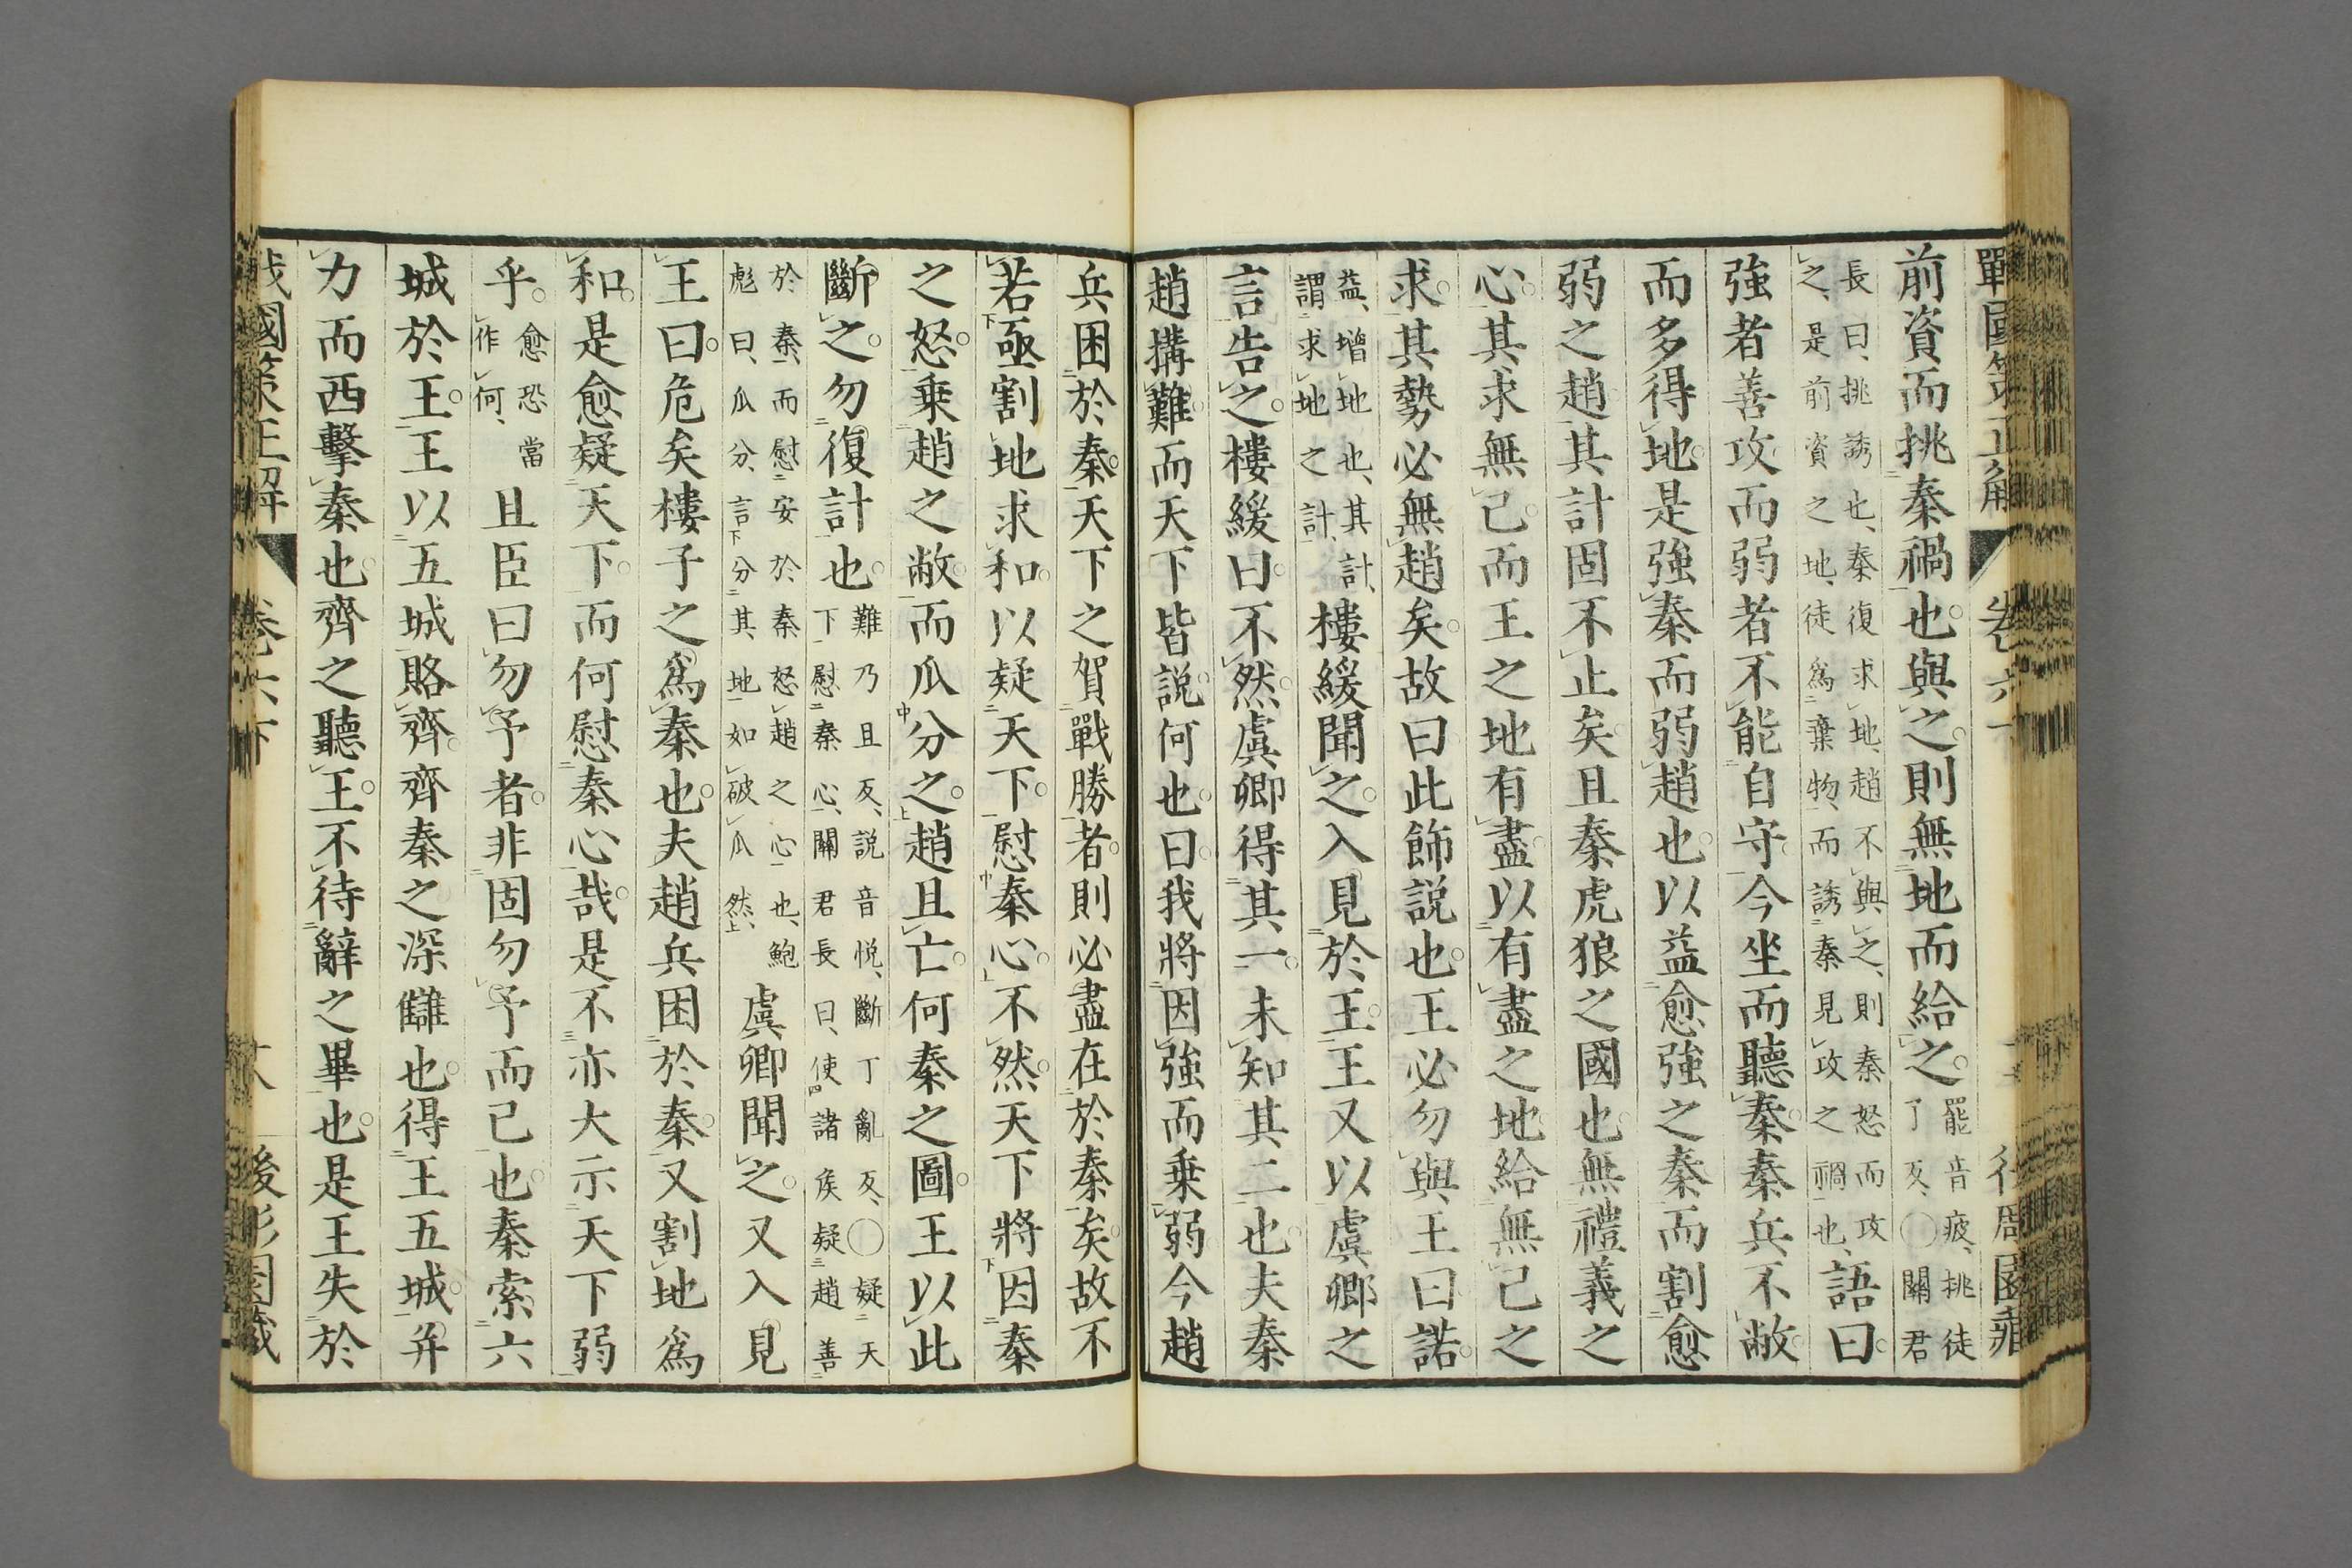 戰國策正解
前資而挑秦禍也與之則無地而給之罷音疲、挑徒了反、○關君
長曰、挑誘也、秦復求地、趙不與之、則秦怒而攻之、是前資之地、徒爲棄物、而誘秦見攻之禍也、語曰
強者善攻而弱者不能自守今坐而聽秦秦兵不敝
而多得地是強秦而弱趙也以益愈強之秦而割愈
弱之趙其計固不止矣且秦虎狼之國也無禮義之
心其求無已而王之地有盡以有盡之地給無已之
求其勢必無趙矣故曰此飾説也王必勿與王曰諾
益、增地也、其計、謂求地之計、樓緩聞之入見於王王又以虞卿之
言告之樓緩曰不然虞卿得其一未知其二也夫秦
趙搆難而天下皆説何也曰我將因強而乗弱今趙
兵困於秦天下之賀戰勝者則必盡在於秦矣故不
若亟割地求和以疑天下慰秦心不然天下將因秦
之怒乗趙之敝而瓜分之趙且亡何秦之圖王以此
斷之勿復計也難乃且反、説音悦、斷丁亂反、○疑天下慰秦心、關君長曰、使諸侯疑趙善
於秦、而慰安於秦怒趙之心也、鮑彪曰、瓜分、言分其地如破瓜然、虞卿聞之又入見
王曰危矣樓子之爲秦也夫趙兵困於秦又割地爲
和是愈疑天下而何慰秦心哉是不亦大示天下弱
乎愈恐當作何、且臣曰勿予者非固勿予而已也秦索六
城於王王以五城賂齊齊秦之深讎也得王五城并
力而西擊秦也齊之聽王不待辭之畢也是王失於
戰國策正解 卷六下 後彫園藏